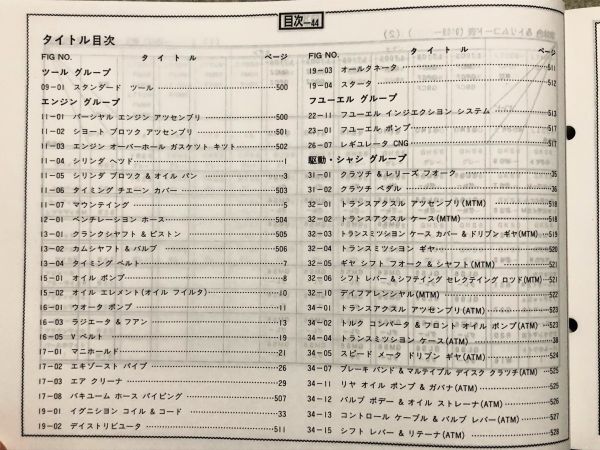 目次—44
タイトル目次
FIG NO. タイトル ページ
ツール グループ
09-01 スタンダード ツール 500
エンジン グループ
11-01 パーシヤル エンジン アツセンブリ 500
11-02 シヨート ブロツク アツセンブリ 501
11-03 エンジン オーバーホール ガスケツト キツト 502
11-04 シリンダ ヘツド 1
11-05 シリンダ ブロツク & オイル パン 3
11-06 タイミング チエーン カバー 503
11-07 マウンテイング 5
12-01 ベンチレーシヨン ホース 504
13-01 クランクシヤフト & ピストン 505
13-02 カムシヤフト & バルブ 506
13-04 タイミング ベルト 7
15-01 オイル ポンプ 8
15-02 オイル エレメント(オイル フイルタ) 10
16-01 ウオータ ポンプ 11
16-03 ラジエータ & フアン 13
16-05 V ベルト 19
17-01 マニホールド 21
17-02 エキゾースト パイプ 26
17-03 エア クリーナ 29
17-08 バキユーム ホース パイピング 507
19-01 イグニシヨン コイル & コード 33
19-02 デイストリビユータ 511
FIG NO. タイトル ページ
19-03 オールタネータ 511
19-04 スタータ 512
フユーエル グループ
22-11 フユーエル インジエクシヨン システム 513
23-01 フユーエル ポンプ 517
26-07 レギユレータ CNG 517
駆動・シヤシ グループ
31-01 クラツチ & レリーズ フオーク 35
31-02 クラツチ ペダル 36
32-01 トランスアクスル アツセンブリ(MTM) 518
32-02 トランスアクスル ケース(MTM) 518
32-03 トランスミツシヨン ケース カバー & ドリブン ギヤ(MTM) 519
32-04 トランスミツシヨン ギヤ 520
32-05 ギヤ シフト フオーク & シヤフト(MTM) 521
32-06 シフト レバー & シフテイング セレクテイング ロツド(MTM) 521
32-10 デイフアレンシヤル(MTM) 522
34-01 トランスアクスル アツセンブリ(ATM) 523
34-02 トルク コンバータ & フロント オイル ポンプ(ATM) 523
34-04 トランスミツシヨン ケース(ATM) 38
34-05 スピード メータ ドリブン ギヤ(ATM) 524
34-07 ブレーキ バンド & マルテイプル デイスク クラツチ(ATM) 525
34-11 リヤ オイル ポンプ & ガバナ(ATM) 525
34-12 バルブ ボデー & オイル ストレーナ(ATM) 526
34-13 コントロール ケーブル & バルブ レバー(ATM) 527
34-15 シフト レバー & リテーナ(ATM) 528